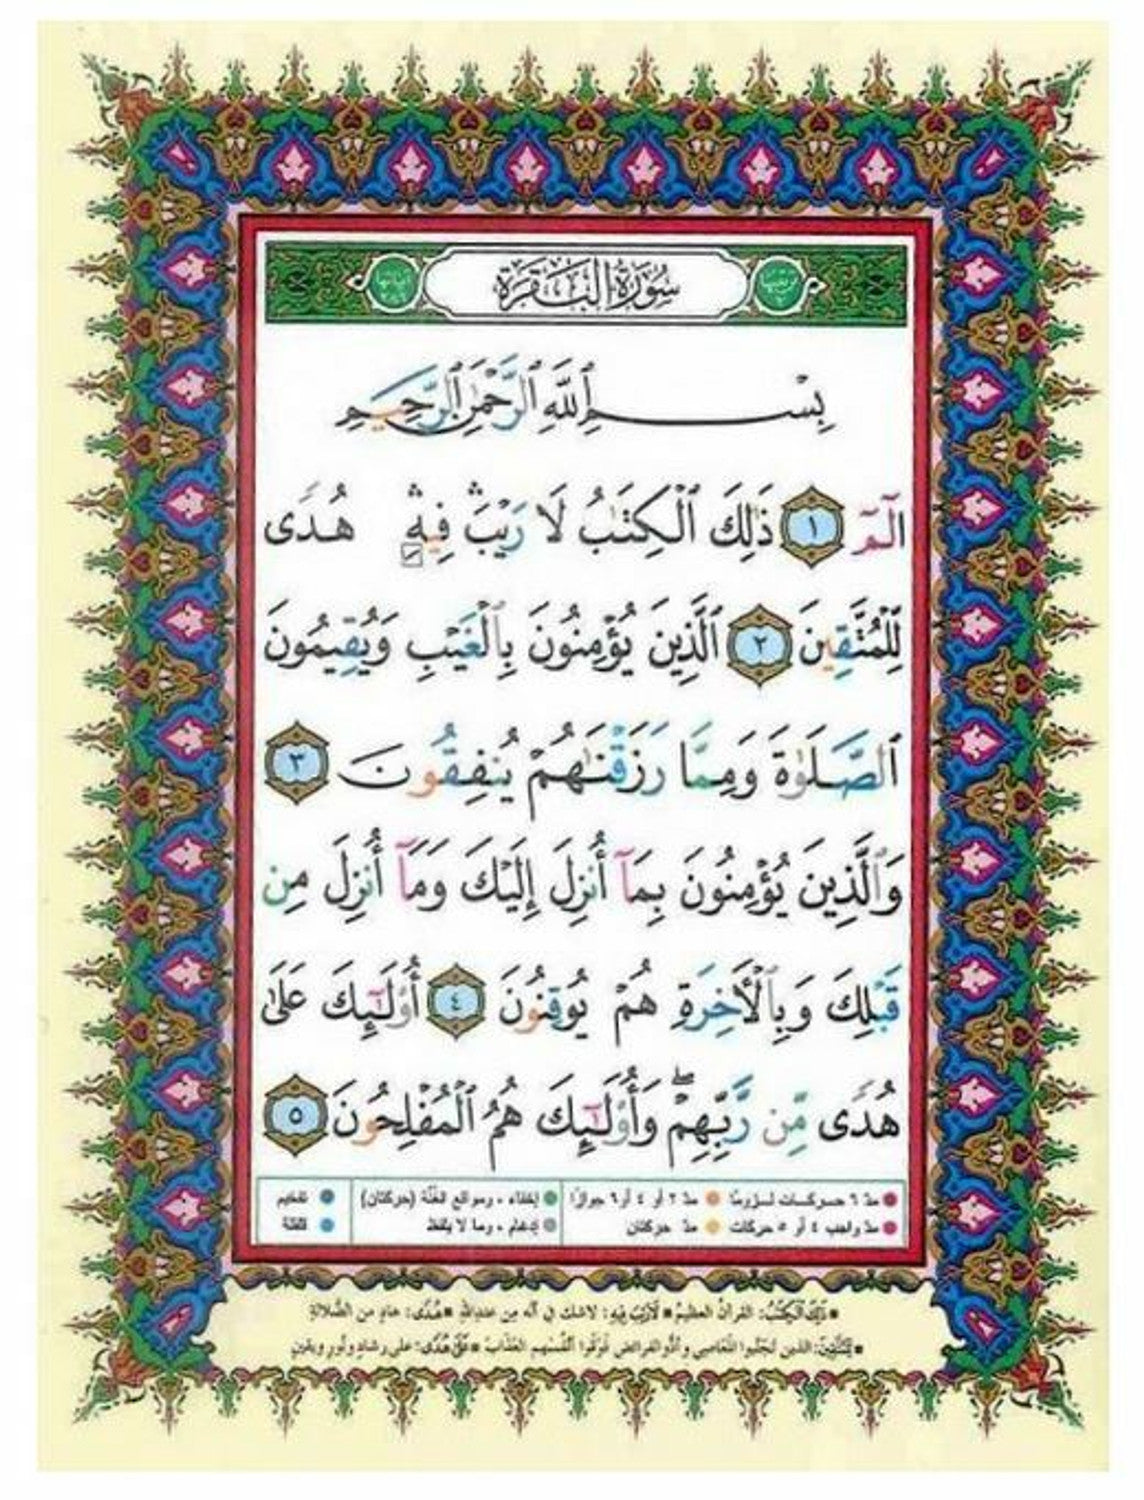 سُورَةُ البَقَرَةِ
بِسْمِ ٱللَّهِ ٱلرَّحْمَٰنِ ٱلرَّحِيمِ
الٓمٓ ١ ذَٰلِكَ ٱلْكِتَٰبُ لَا رَيْبَ ۛ فِيهِ ۛ هُدًى
لِّلْمُتَّقِينَ ٢ ٱلَّذِينَ يُؤْمِنُونَ بِٱلْغَيْبِ وَيُقِيمُونَ
ٱلصَّلَوٰةَ وَمِمَّا رَزَقْنَٰهُمْ يُنفِقُونَ ٣
وَٱلَّذِينَ يُؤْمِنُونَ بِمَآ أُنزِلَ إِلَيْكَ وَمَآ أُنزِلَ مِن
قَبْلِكَ وَبِٱلْأَخِرَةِ هُمْ يُوقِنُونَ ٤ أُو۟لَٰٓئِكَ عَلَىٰ
هُدًى مِّن رَّبِّهِمْ ۖ وَأُو۟لَٰٓئِكَ هُمُ ٱلْمُفْلِحُونَ ٥
مد ٦ حركات لزوماً مد ٢ أو ٤ أو ٦ جوازاً إخفاء ، ومواقع الغُنَّة (حركتان) تفخيم
مد واجب ٤ أو ٥ حركات مد حركتان إدغام ، وما لا يلفظ قلقلة
ذَلِكَ الْكِتَبُ: القرآن العظيم لَا رَيْبَ فِيهِ: لاشك في أنه من عند الله هُدًى: هادٍ من الضلالة
لِلْمُتَّقِينَ: الذين تجنَّبوا المعاصي وأدَّوا الفرائض فَوَقَوا أنفسهم العذاب عَلَى هُدًى: على رشادٍ ونورٍ ويقين